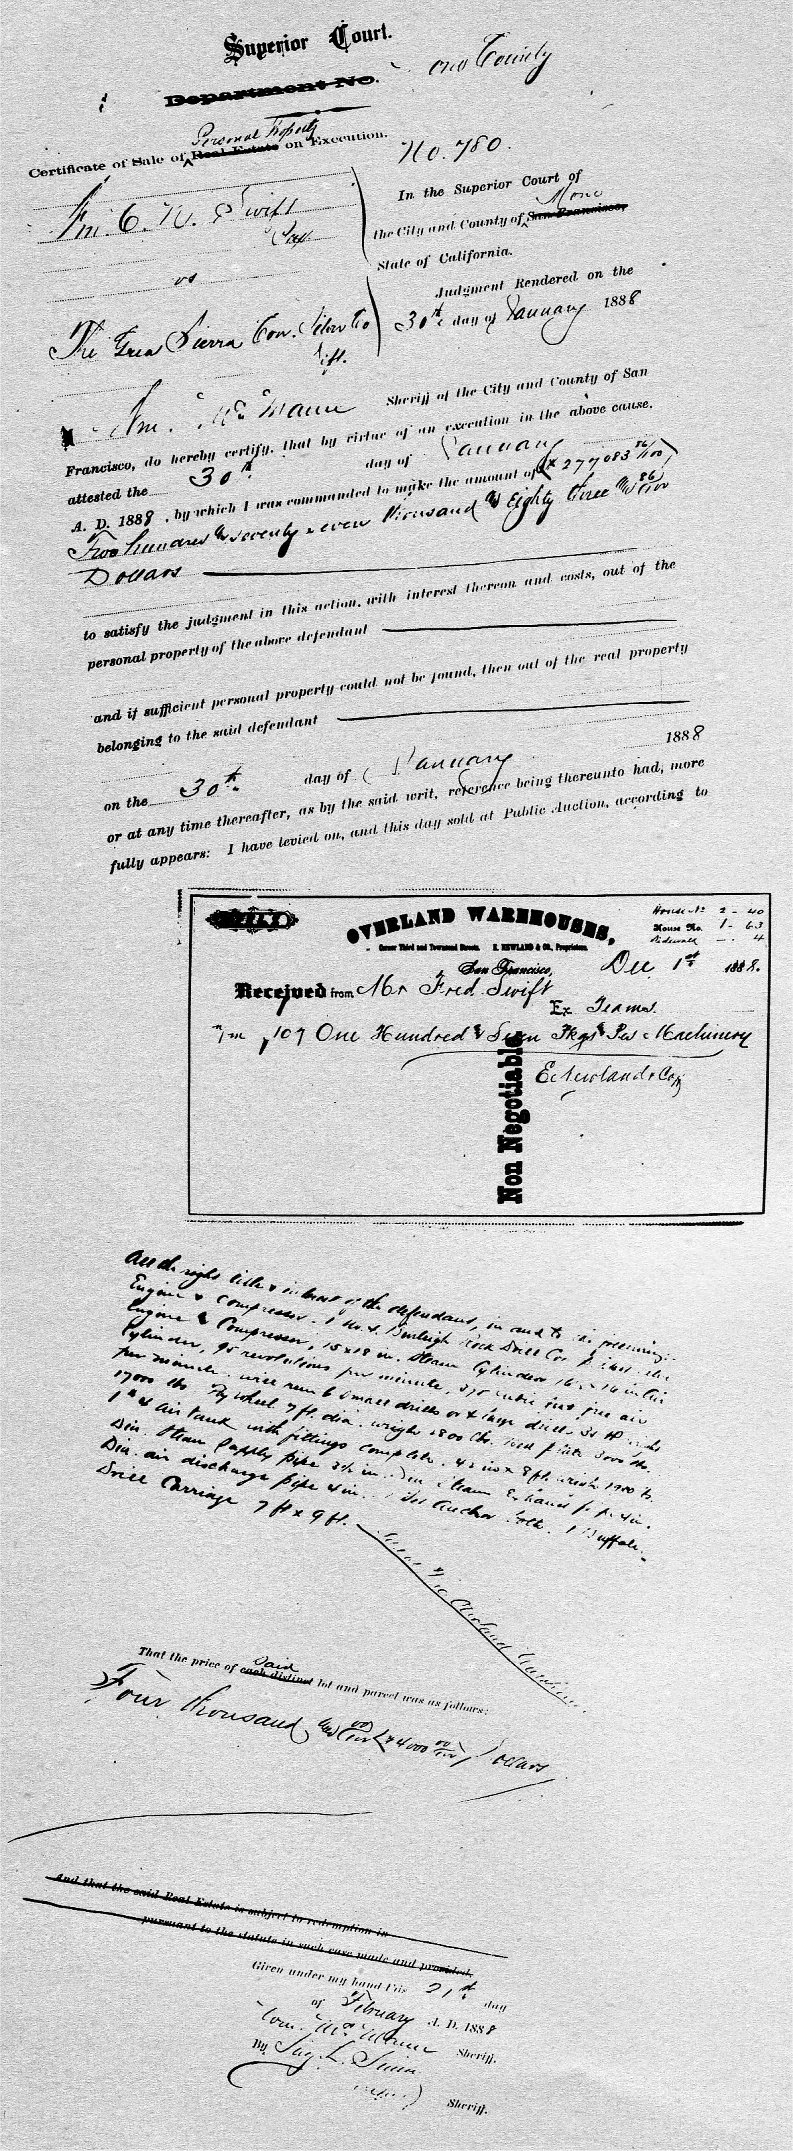 Superior Court.
Department No.
County
Personal Property
Certificate of Sale of Real Estate on Execution.
No. 780.
In the Superior Court of
Mono
the City and County of San Francisco,
State of California.
Swift
vs
Judgment Rendered on the
30th day of January 1888
The Sierra
Wm. Sheriff of the City and County of San
Francisco, do hereby certify, that by virtue of an execution in the above cause,
attested the 30th day of January
A. D. 1888, by which I was commanded to make the amount of ($277083 86/100)
Two hundred & seventy seven thousand & Eighty three and 86/100
Dollars
to satisfy the judgment in this action, with interest thereon and costs, out of the
personal property of the above defendant
and if sufficient personal property could not be found, then out of the real property
belonging to the said defendant
on the 30th day of January 1888
or at any time thereafter, as by the said writ, reference being thereunto had, more
fully appears: I have levied on, and this day sold at Public Auction, according to
OVERLAND WAREHOUSES,
Corner Third and Townsend Streets. E. NEWLAND & CO., Proprietors.
2 - 40
House No. 1 - 63
Sidewalk - 4
San Francisco, Dec. 1st 188
Received from Mr Fred. Swift
Ex Teams.
107 One Hundred & Seven Pkgs & Pcs Machinery
E. Newland & Co
Non Negotiable.
All the right title & interest of the defendant, in and to the following:
Engine & Compressor. 1 No. Burleigh Rock Drill Co.
Engine & Compressor, 15 x 18 in. Steam Cylinder 16 x in Air
Cylinder, 95 revolutions per minute, cubic feet free air
per minute. will run 6 small drills or 4 large drills
17000 lbs Fly wheel 7 ft. dia. weight 1800 lbs. bed plate 3000 lbs.
Air Tank with fittings complete. 42 in x 8 ft. weight 1700 lbs.
Dia. Steam Supply pipe 3½ in. Dia. Steam Exhaust pipe 4 in.
Dia. air discharge pipe 4 in. Anchor bolts. 1 Buffalo
Drill Carriage 7 ft x 9 ft.
Said
That the price of each distinct lot and parcel was as follows:
Four thousand and 00/100 ($4000 00/100) Dollars
And that the said Real Estate is subject to redemption in
pursuant to the statute in such case made and provided.
Given under my hand this 21st day
of February A. D. 1888
Wm. Sheriff.
By
Sheriff.